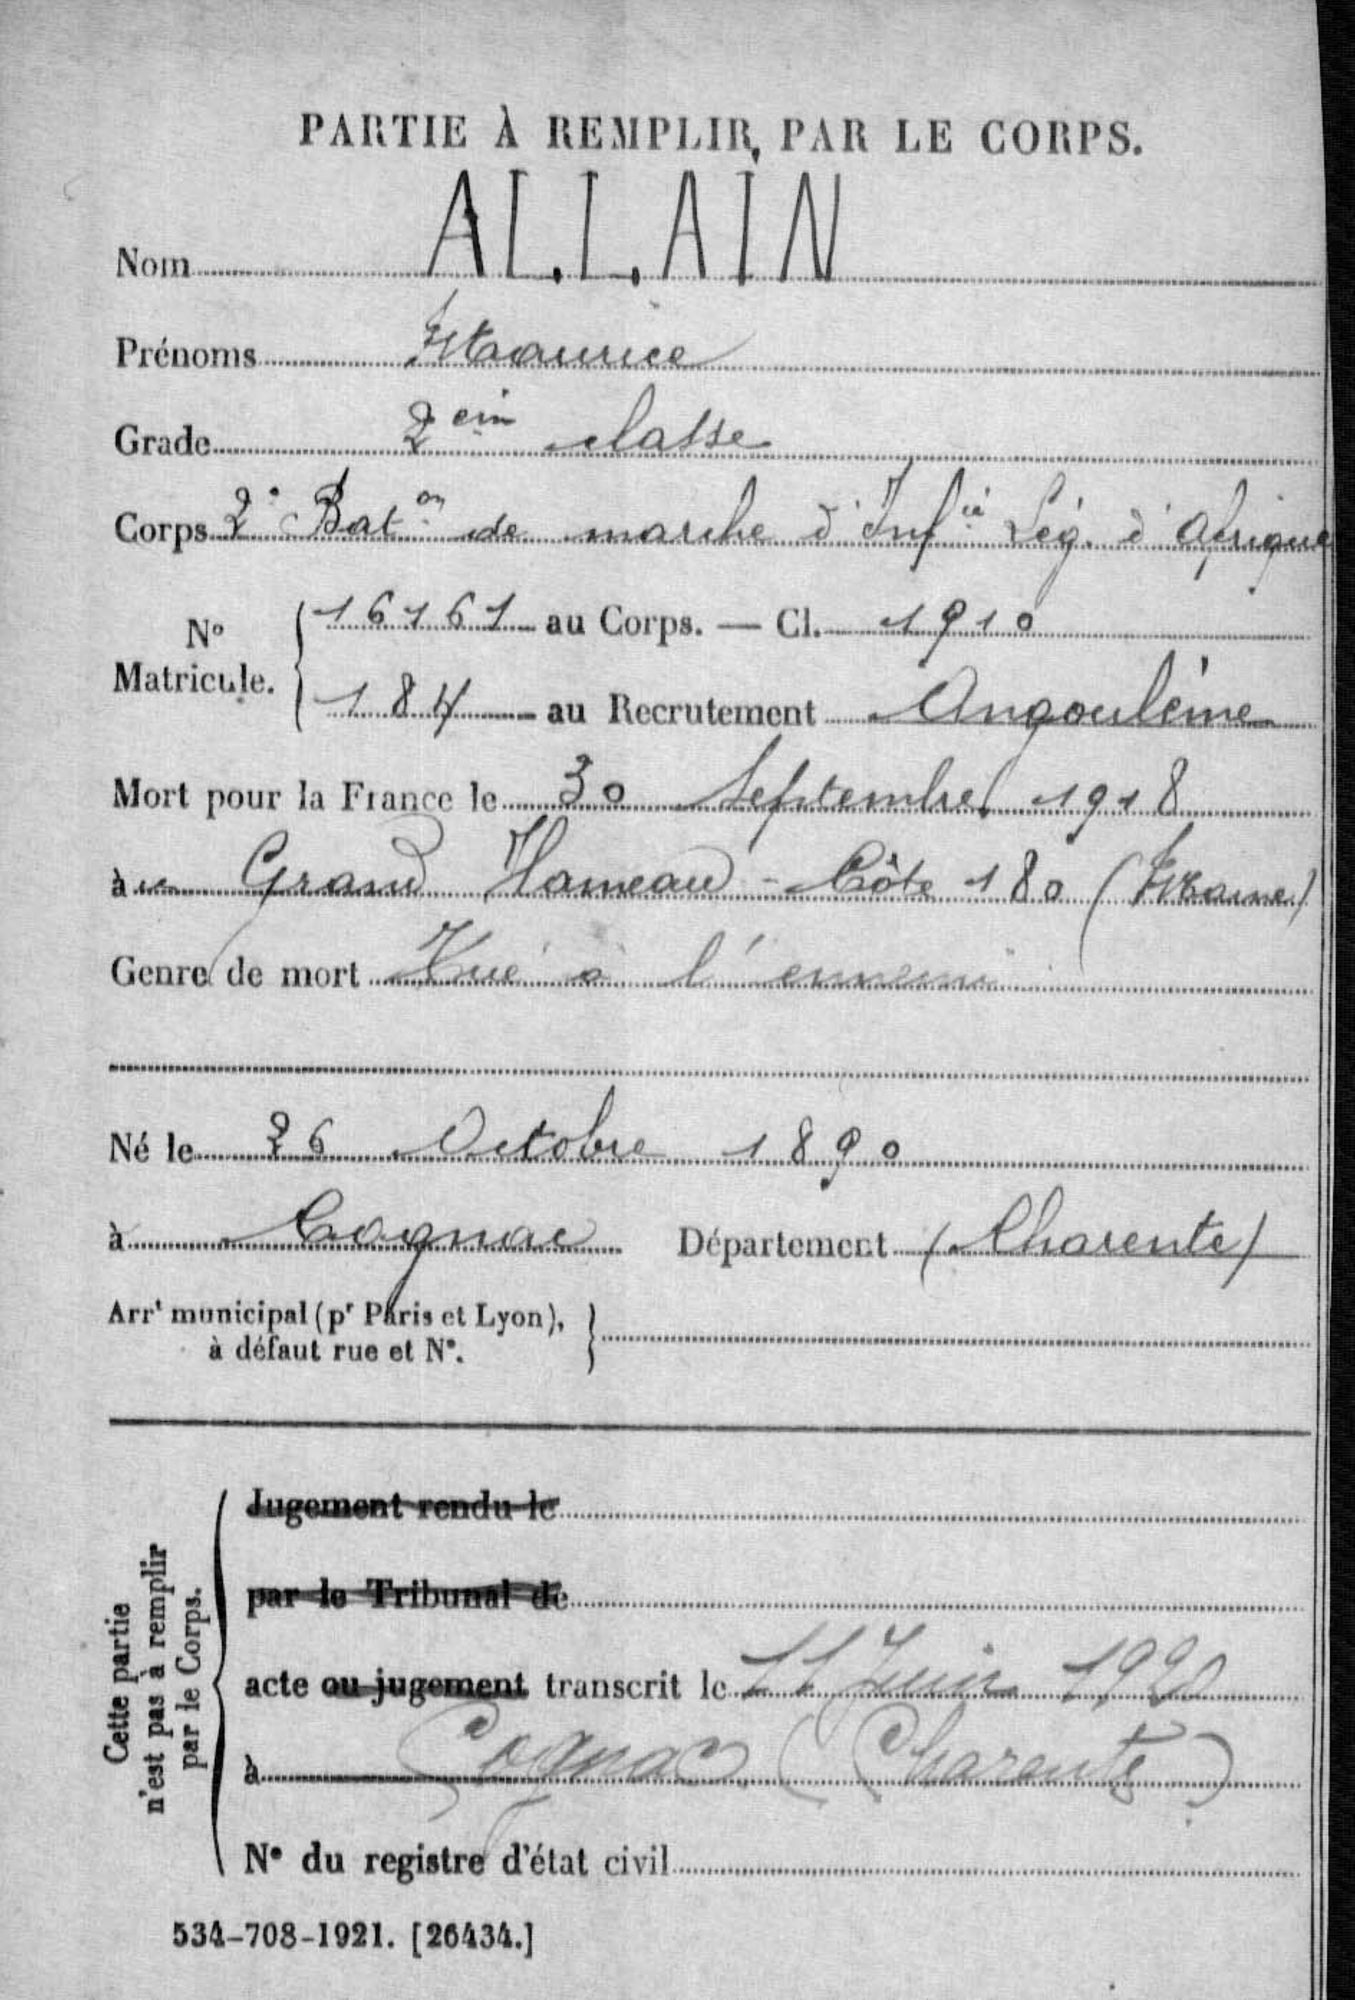 PARTIE À REMPLIR PAR LE CORPS.
Nom ALLAIN
Prénoms Maurice
Grade 2eme classe
Corps 2e Baton de marche d'Infie Lég. d'Afrique
No Matricule. 16161 au Corps. — Cl. 1910
184 au Recrutement Angoulême
Mort pour la France le 30 Septembre 1918
à Grand Hameau - Côte 180 (Marne)
Genre de mort Tué à l'ennemi
Né le 26 Octobre 1890
à Cognac Département (Charente)
Arrt municipal (pr Paris et Lyon),
à défaut rue et No.
Cette partie
n'est pas à remplir
par le Corps.
Jugement rendu le
par le Tribunal de
acte ou jugement transcrit le 11 Juin 1920
à Cognac (Charente)
No du registre d'état civil
534-708-1921. [26434.]